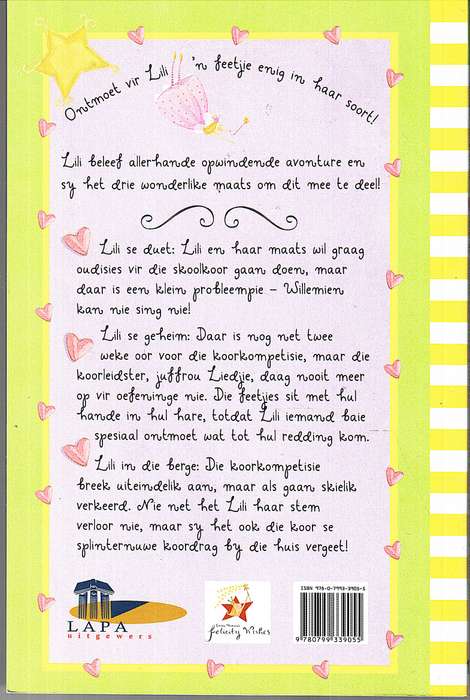 Ontmoet vir Lili 'n feetjie enig in haar soort!
Lili beleef allerhande opwindende avonture en
sy het drie wonderlike maats om dit mee te deel!
Lili se duet: Lili en haar maats wil graag
oudisies vir die skoolkoor gaan doen, maar
daar is een klein probleempie – Willemien
kan nie sing nie!
Lili se geheim: Daar is nog net twee
weke oor voor die koorkompetisie, maar die
koorleidster, juffrou Liedjie, daag nooit meer
op vir oefeninge nie. Die feetjies sit met hul
hande in hul hare, totdat Lili iemand baie
spesiaal ontmoet wat tot hul redding kom.
Lili in die berge: Die koorkompetisie
breek uiteindelik aan, maar als gaan skielik
verkeerd. Nie net het Lili haar stem
verloor nie, maar sy het ook die koor se
splinternuwe koordrag by die huis vergeet!
LAPA
uitgewers
felicity Wishes
ISBN 978-0-7993-3905-5
9 780799 339055